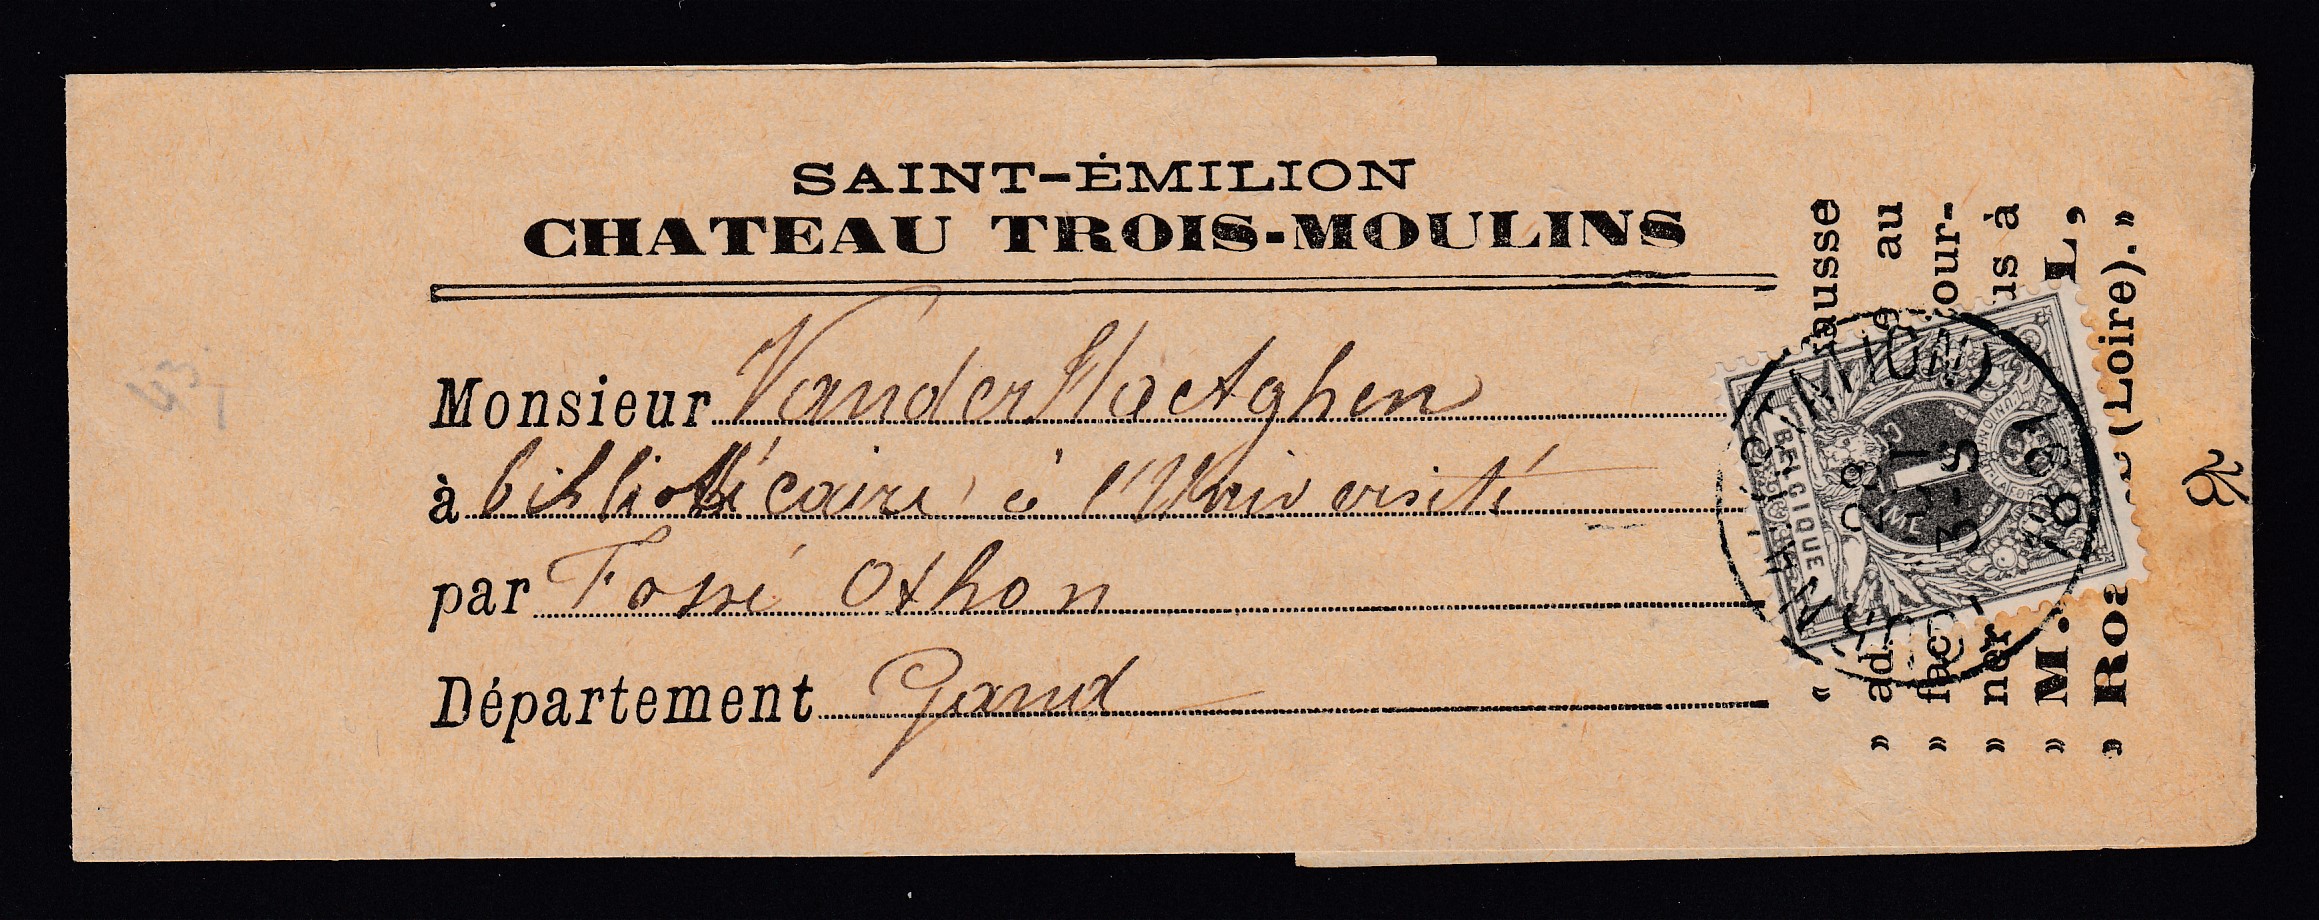 SAINT-ÉMILION
CHATEAU TROIS-MOULINS
Monsieur VanderHaeghen
à bibliothécaire à l'Université
par Fossé Othon
Département Gand
« fausse
» ad au
» fac our-
» ner us à
» M. L,
» Roa (Loire). »
BELGIQUE
1
CENTIME
(STATION)
28
3-S
1891